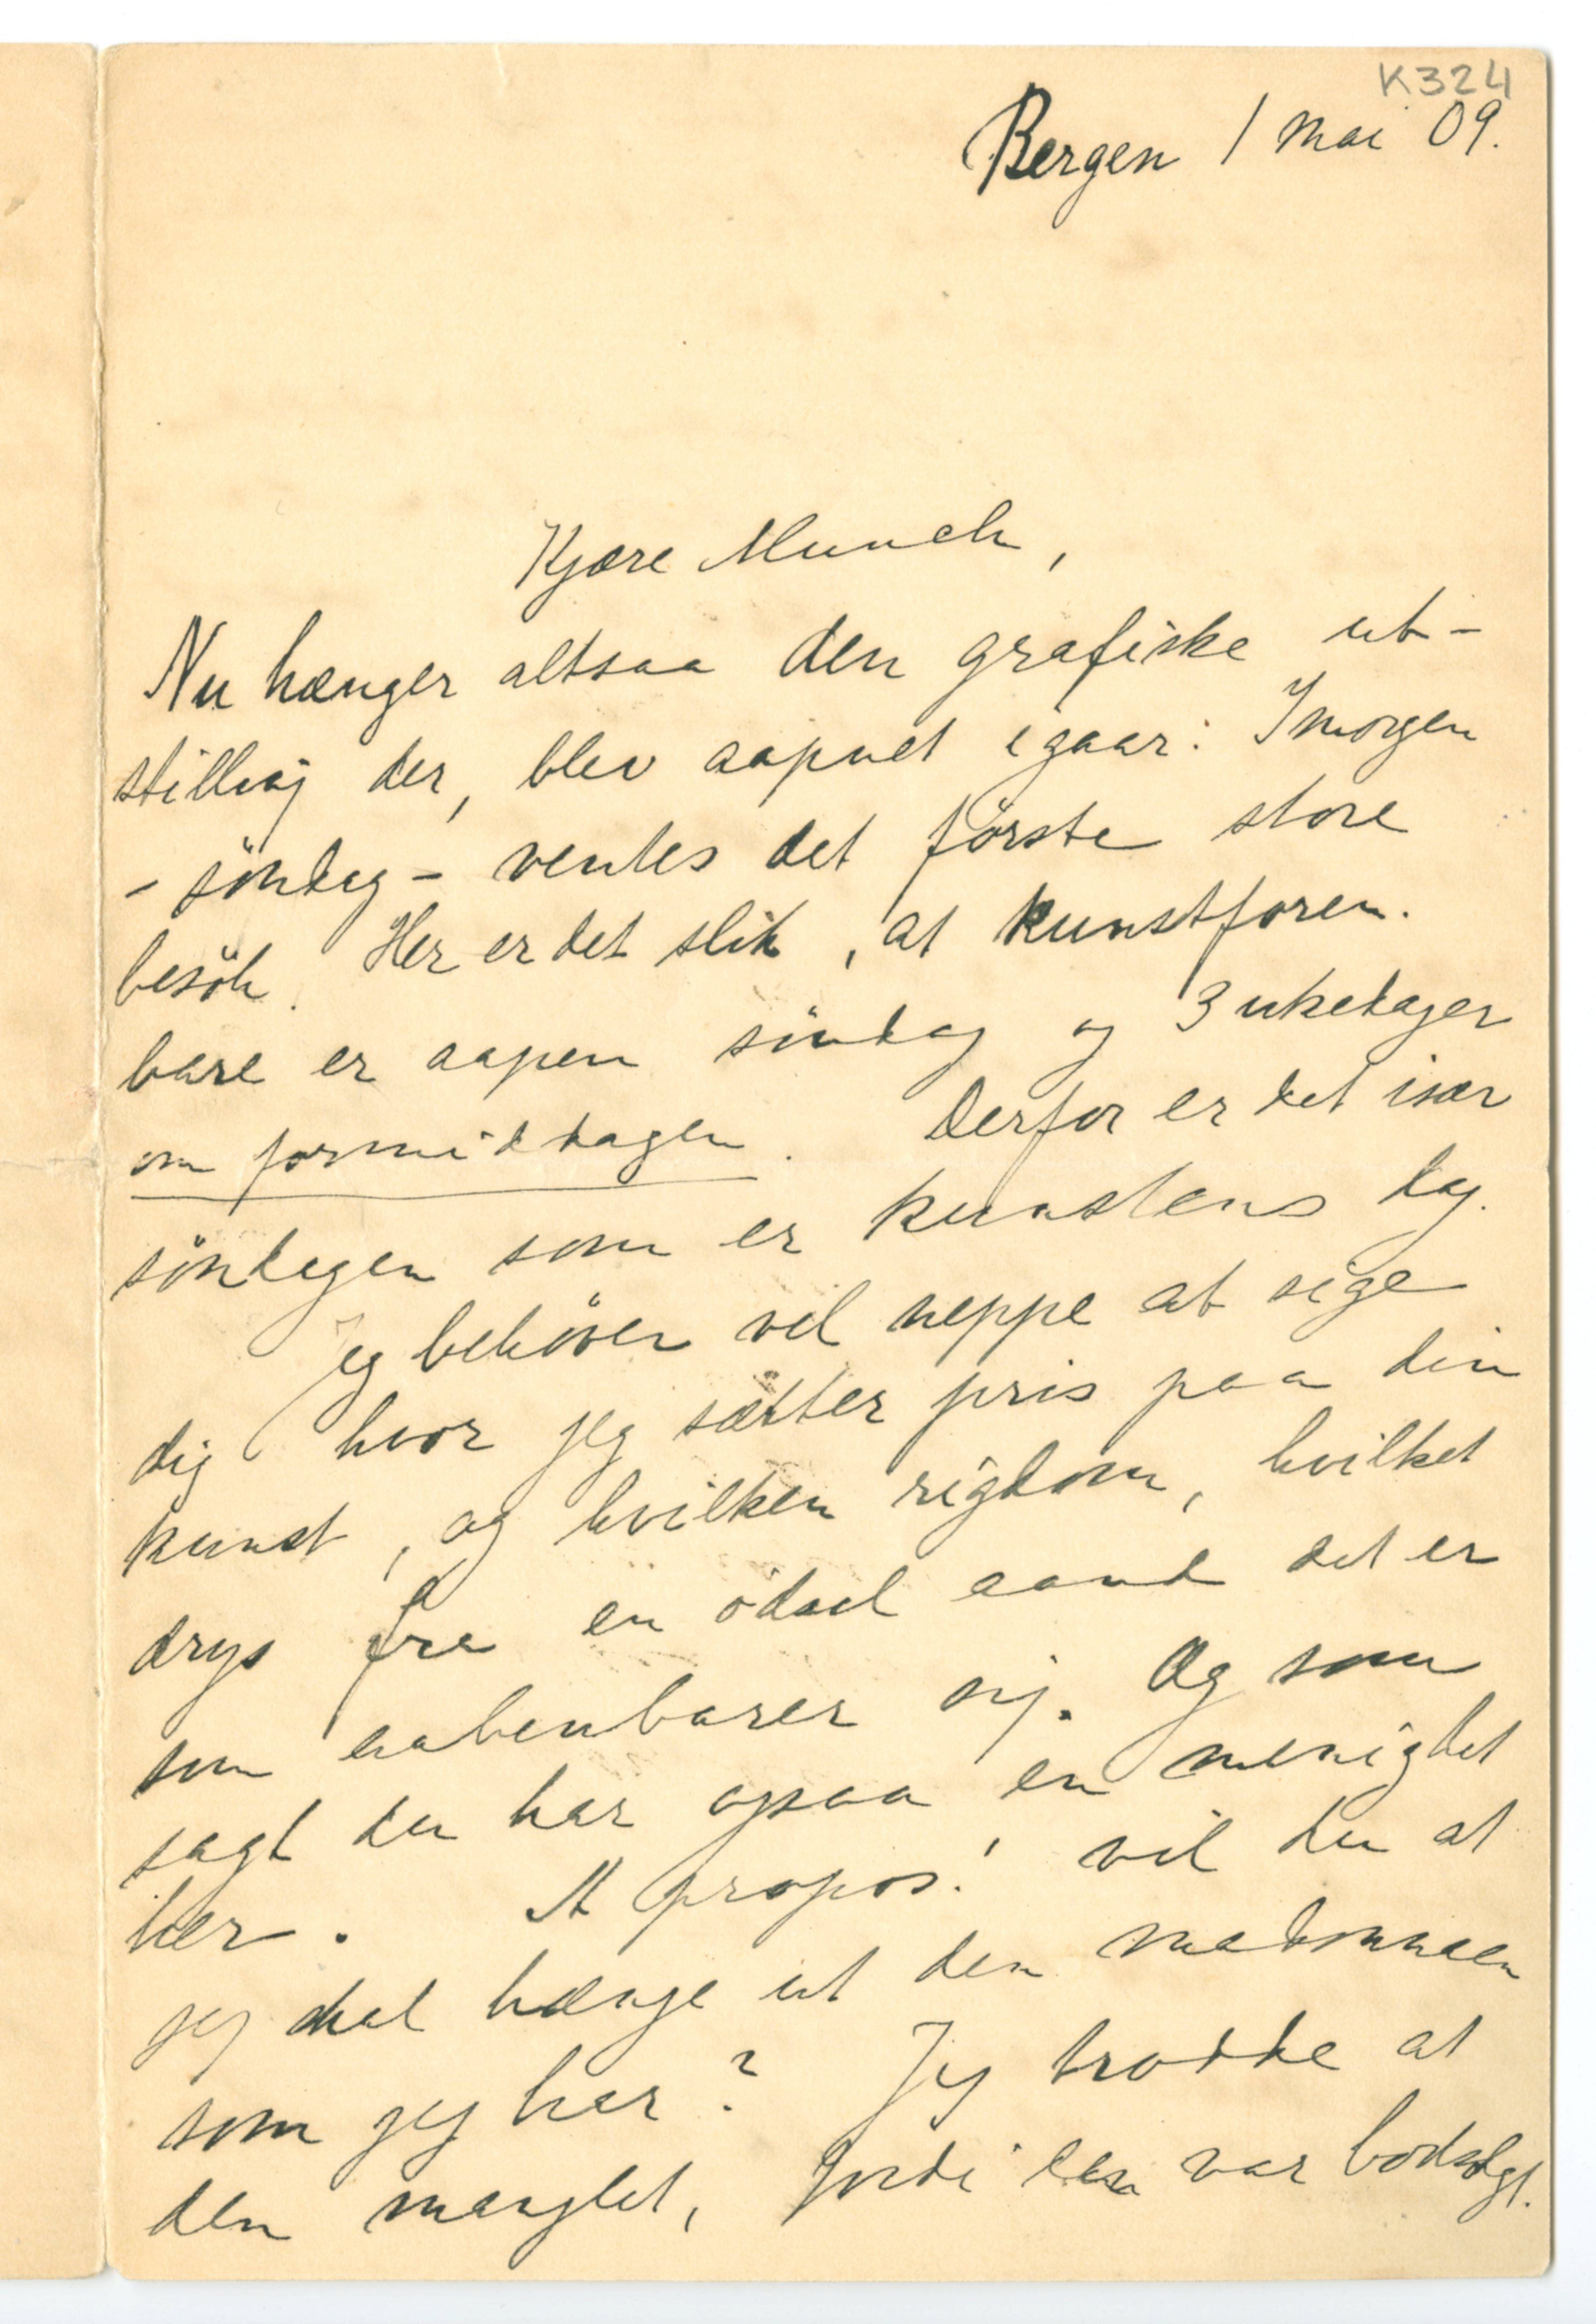 K324
Bergen 1 mai 09.
Kjære Munch,
Nu hænger altsaa den grafiske ut-
stilling der, blev aapnet igaar. Imorgen
- söndag - ventes det förste store
besök. Her er det slik, at kunstforen.
bare er aapen söndag og 3 ukedager
om formiddagen. Derfor er det især
söndagen som er kunstens dag.
Jeg behöver vel neppe at sige
dig hvor jeg sætter pris paa din
kunst, og hvilken rigdom, hvilket
drys fra en ödsel aand det er
som aabenbarer sig. Og som
sagt du har ogsaa en menighet
her. A propos! vil du at
jeg skal hænge ut den madonnaen
som jeg har? Jeg trodde at
den manglet, fordi den var bortsolgt.